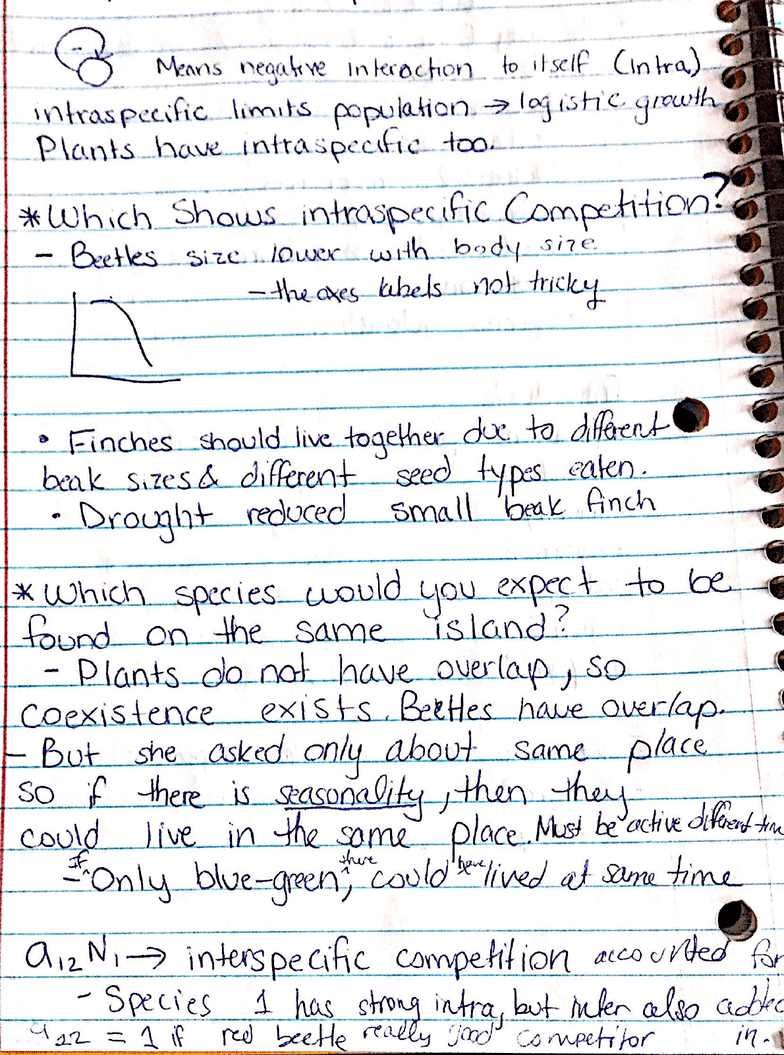 Means negative interaction to itself (intra)
intraspecific limits population → logistic growth
Plants have intraspecific too.
*Which Shows intraspecific Competition?
- Beetles size lower with body size
- the axes labels not tricky
• Finches should live together due to different
beak sizes & different seed types eaten.
• Drought reduced small beak finch
*Which species would you expect to be
found on the same island?
- Plants do not have overlap, so
coexistence exists. Beetles have overlap.
- But she asked only about same place
so if there is seasonality, then they
could live in the same place. Must be active different time
- If Only blue-green, there could have lived at same time
a12 N1 → interspecific competition accounted for
- Species 1 has strong intra, but inter also added
= 1 if red beetle really good competitor in.